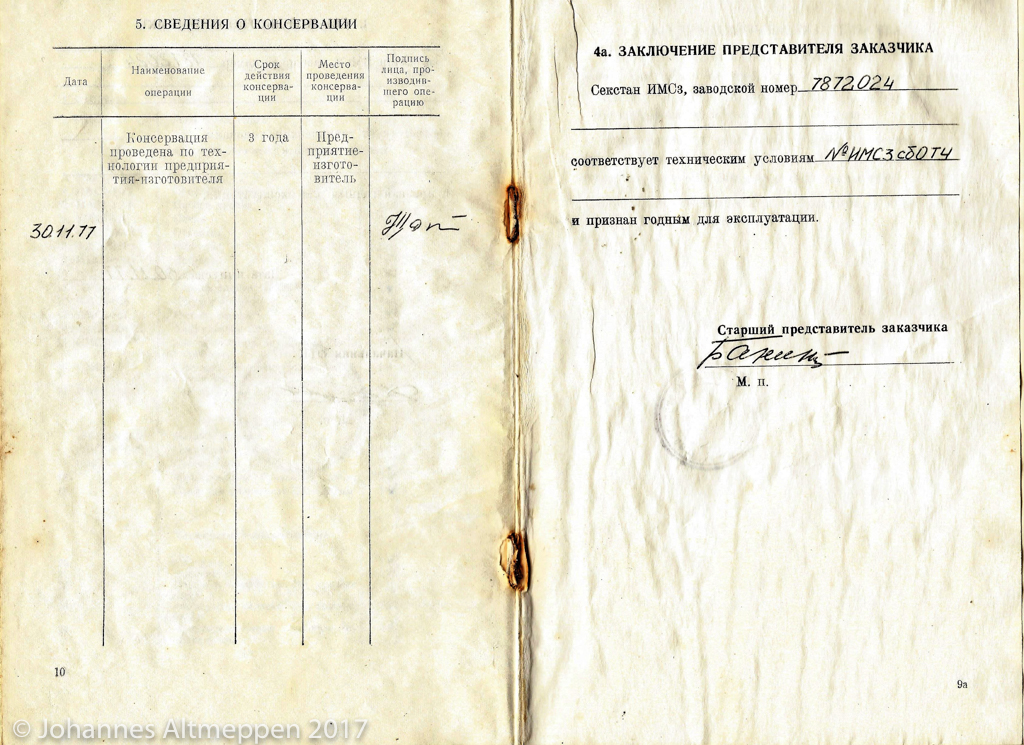 5. СВЕДЕНИЯ О КОНСЕРВАЦИИ
Дата
Наименование
операции
Срок
действия
консерва-
ции
Место
проведения
консерва-
ции
Подпись
лица, про-
изводив-
шего опе-
рацию
Консервация
проведена по тех-
нологии предприя-
тия-изготовителя
3 года
Пред-
приятие-
изгото-
витель
30.11.77
10
4а. ЗАКЛЮЧЕНИЕ ПРЕДСТАВИТЕЛЯ ЗАКАЗЧИКА
Секстан ИМСз, заводской номер 7872024
соответствует техническим условиям №ИМСЗсб0ТЧ
и признан годным для эксплуатации.
Старший представитель заказчика
М. п.
9а
© Johannes Altmeppen 2017